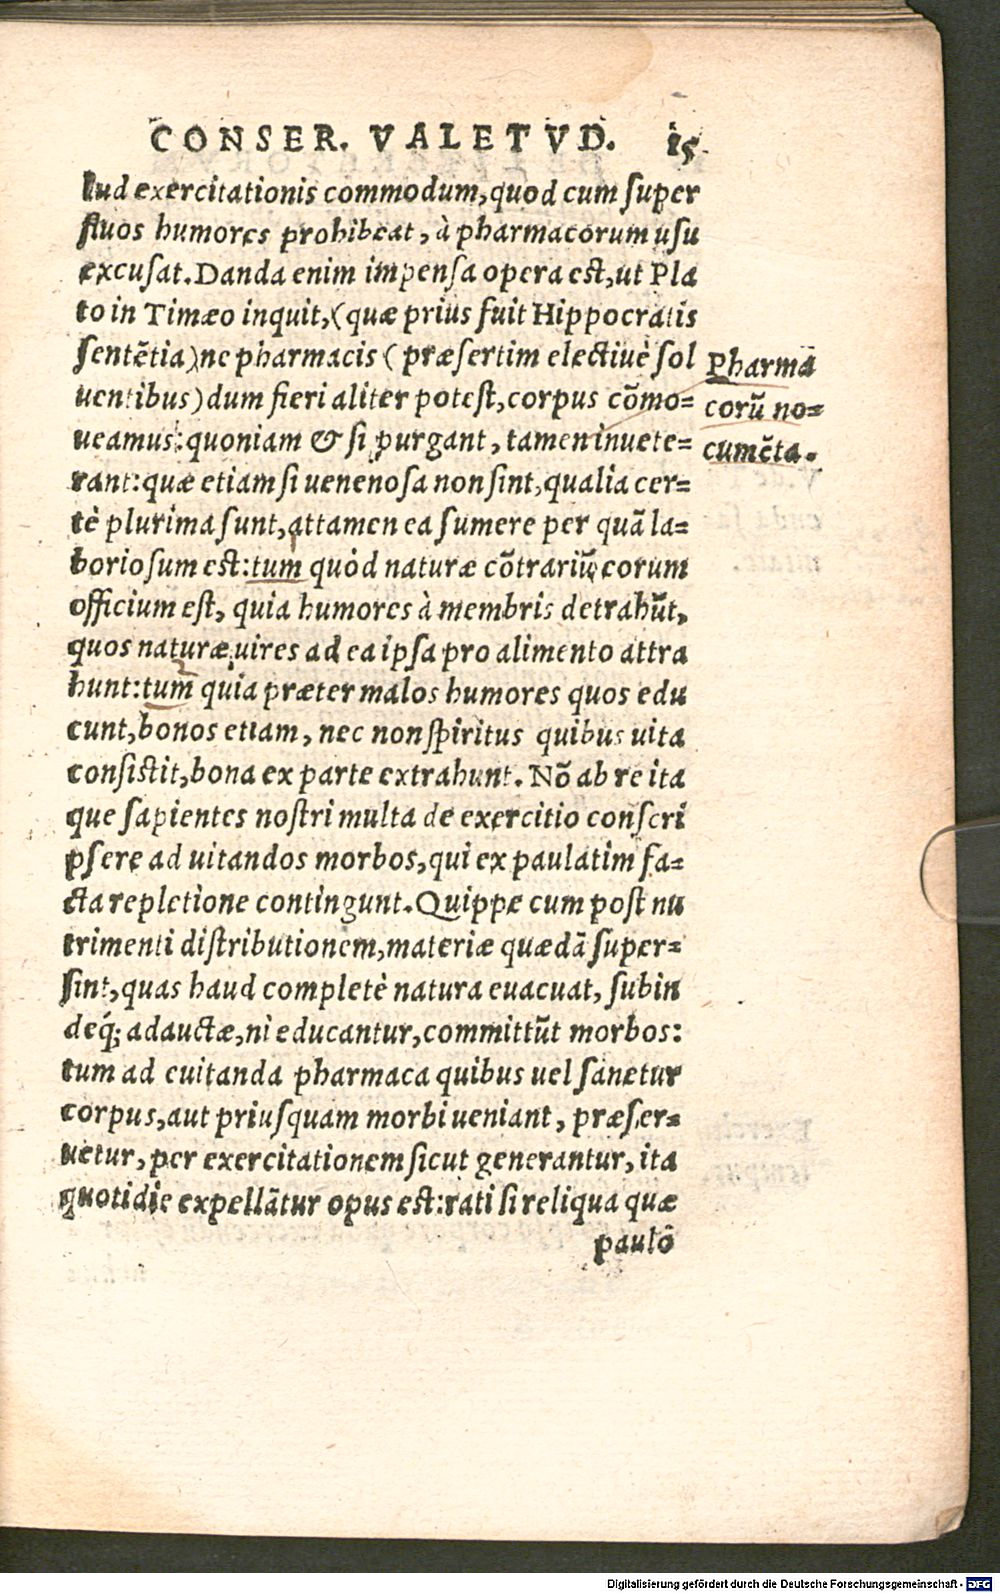 CONSER. VALETVD. 15
lud exercitationis commodum, quod cum super
fluos humores prohibeat, à pharmacorum usu
excusat. Danda enim impensa opera est, ut Pla
to in Timæo inquit, (quæ prius fuit Hippocratis
sentẽtia) ne pharmacis (præsertim electiuè sol
uentibus) dum fieri aliter potest, corpus cõmo=
ueamus: quoniam & si purgant, tamen inuete=
rant: quæ etiam si uenenosa non sint, qualia cer=
tè plurima sunt, attamen ea sumere per quã la=
boriosum est: tum quòd naturæ cõtrariũ eorum
officium est, quia humores à membris detrahũt,
quos naturæ uires ad ea ipsa pro alimento attra
hunt: tum quia præter malos humores quos edu
cunt, bonos etiam, nec non spiritus quibus uita
consistit, bona ex parte extrahunt. Nõ ab re ita
que sapientes nostri multa de exercitio conscri
psere ad uitandos morbos, qui ex paulatim fa=
cta repletione contingunt. Quippe cum post nu
trimenti distributionem, materiæ quædã super=
sint, quas haud completè natura euacuat, subin
deq́; adauctæ, ni educantur, committũt morbos:
tum ad euitanda pharmaca quibus uel sanetur
corpus, aut priusquam morbi ueniant, præser=
uetur, per exercitationem sicut generantur, ita
quotidie expellãtur opus est: rati si reliqua quæ
paulò
Pharma
corũ no=
cumẽta.
Digitalisierung gefördert durch die Deutsche Forschungsgemeinschaft - DFG